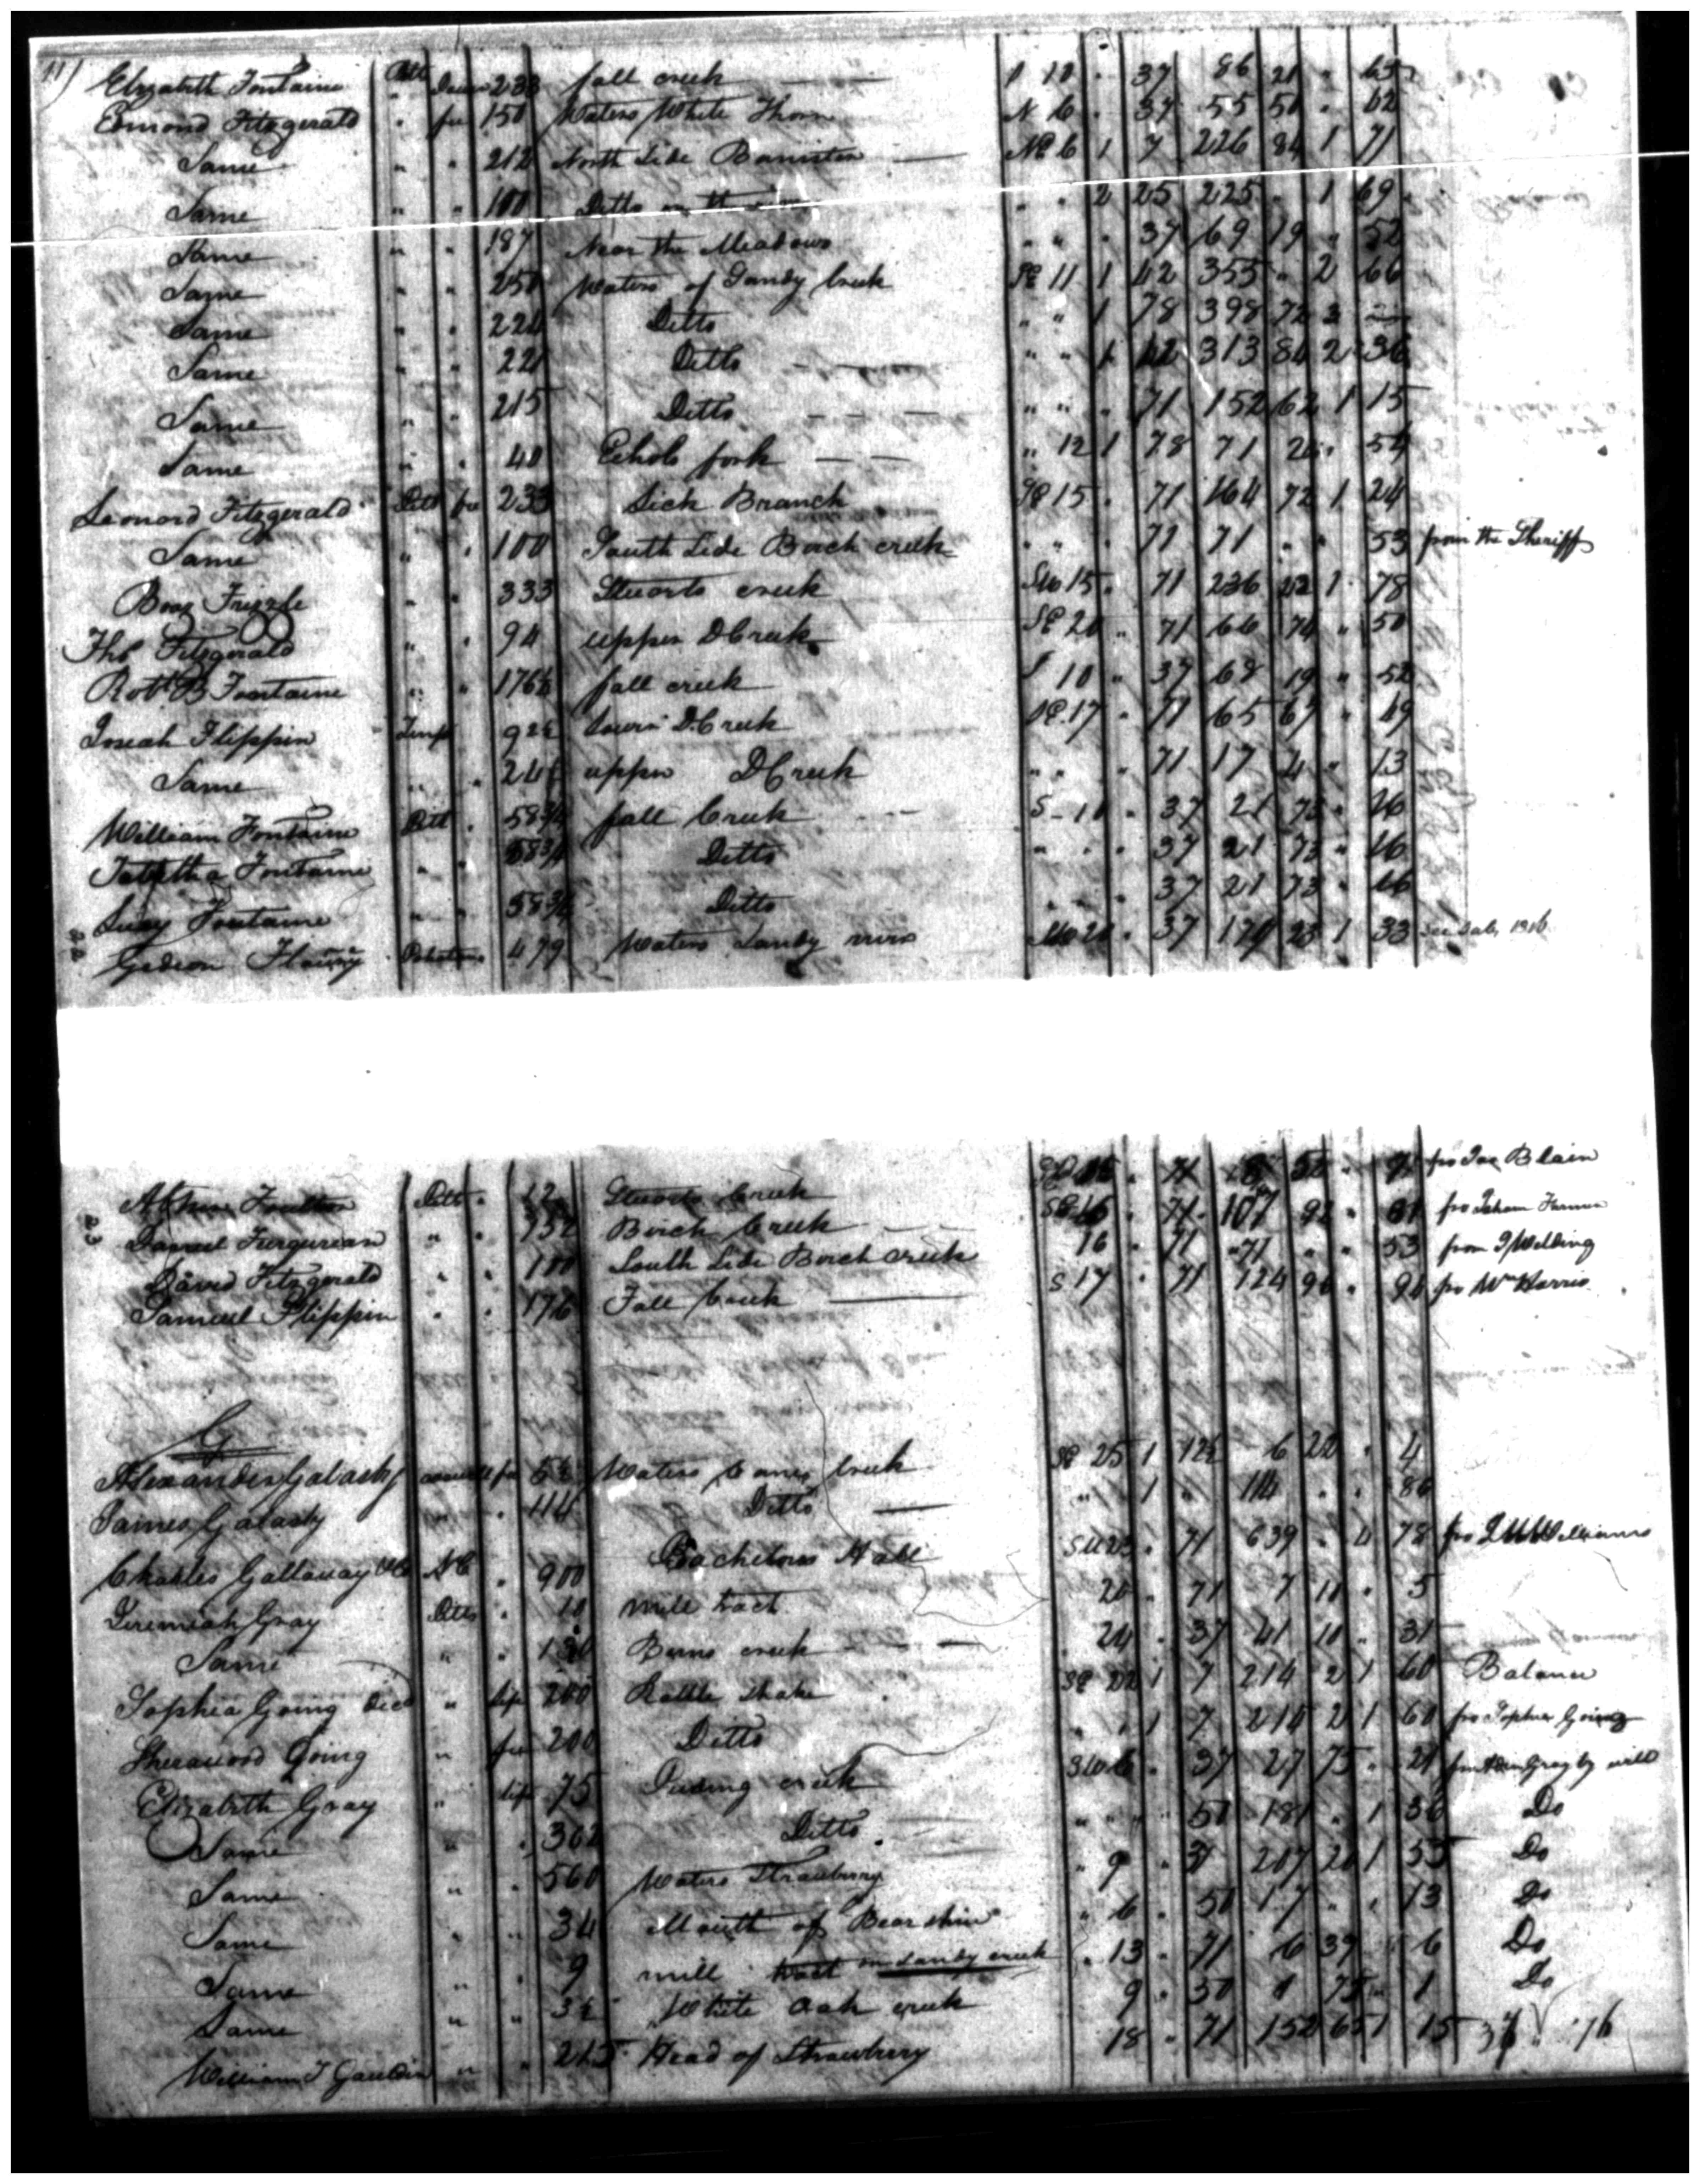 Elizabeth Fontaine Pitt Dower 233 fall creek S 10 " 37 86 21 " 65
Edmond Fitzgerald " fee 150 Waters White Thorn N 6 " 37 55 50 " 42
Same " " 212 North Side Banister NE 6 1 7 226 84 1 71
Same " " 100 Ditto on the " " 2 25 225 " 1 69
Same " " 187 Near the Meadows " " " 37 69 19 " 52
Same " " 250 Waters of Sandy Creek SE 11 1 42 355 " 2 66
Same " " 224 Ditto " " 1 78 398 72 3
Same " " 221 Ditto " " 1 42 313 84 2 36
Same " " 215 Ditto " " " 71 152 62 1 15
Same " " 40 Echols fork " 12 1 78 71 20 " 54
Leonard Fitzgerald Ditto fee 233 Lick Branch SE 15 " 71 164 72 1 24
Same " " 100 South Side Birch creek " " " 71 71 " " 53 from the Sheriff
Boaz Frizzle " " 333 Stuarts creek SW 15 " 71 236 1 78
Tho Fitzgerald " " 94 upper DCreek SE 20 " 71 66 74 " 50
Robt B Fontaine " " 176½ fall creek S 10 " 37 68 19 " 52
Josiah Flippin " 92½ lower DCreek SE 17 " 71 65 67 " 49
Same " " 24 upper DCreek " " " 71 17 4 " 13
William Fontaine Pitt " 58¾ fall Creek S 10 " 37 21 73 " 16
Tabitha Fontaine " " 58¾ Ditto " " " 37 21 73 " 16
Lucy Fontaine " " 58¾ Ditto " " " 37 21 73 " 16
Gideon 479 Waters Sandy river 20 " 37 23 1 33 1816
Foulton Pitt " 12 Stuarts Creek SE 15 " 71 8 52 " fro Jas Blain
Daniel Furgurson " " 152 Birch Creek SE 16 " 71 107 92 " 81 fro Isham Farmer
David Fitzgerald " " 100 South Side Birch creek 16 " 71 71 " " 53 from J Welding
Samuel Flippin " " 176 Fall Creek S 17 " 71 124 96 " 94 fro Wm Harris
G
Alexander Galasby fee 5½ Waters Canes Creek SE 25 1 12½ 6 22 " 4
James Galasby " " 114 Ditto " 1 " 114 " " 86
Charles Gallaway &Co NC " 900 Bachelors Hall SW 23 " 71 639 " 4 78 fro Williams
Jeremiah Gray Pitts " 10 mill tract 20 " 71 7 10 " 5
Same " " 130 Burns creek 24 " 37 41 10 " 31
Sophia Going Decd " life 200 Rattle Snake SE 22 1 7 214 2 1 60 Balance
Sherawood Going " fee 200 Ditto " " 1 7 214 2 1 60 fro Sophia Going
Elizabeth Gray " life 75 Puding creek SW 6 " 37 27 75 " 21 Gray by will
Same " " 302 Ditto " " " 50 181 " 1 36 Do
Same " " 560 Waters Strawberry " 9 " 37 207 20 1 55 Do
Same " " 34 Mouth of Bear skin " 6 " 50 17 " " 13 Do
Same " " 9 mill tract on Sandy creek " 13 " 71 6 39 " 6 Do
Same " " 3½ White Oak creek 9 " 50 1 75 " 1 Do
William T Gauldin " " 215 Head of Strawberry 18 " 71 152 65 1 15